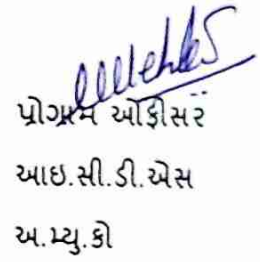 પ્રોગ્રામ ઓફીસર
આઇ.સી.ડી.એસ
અ.મ્યુ.કો